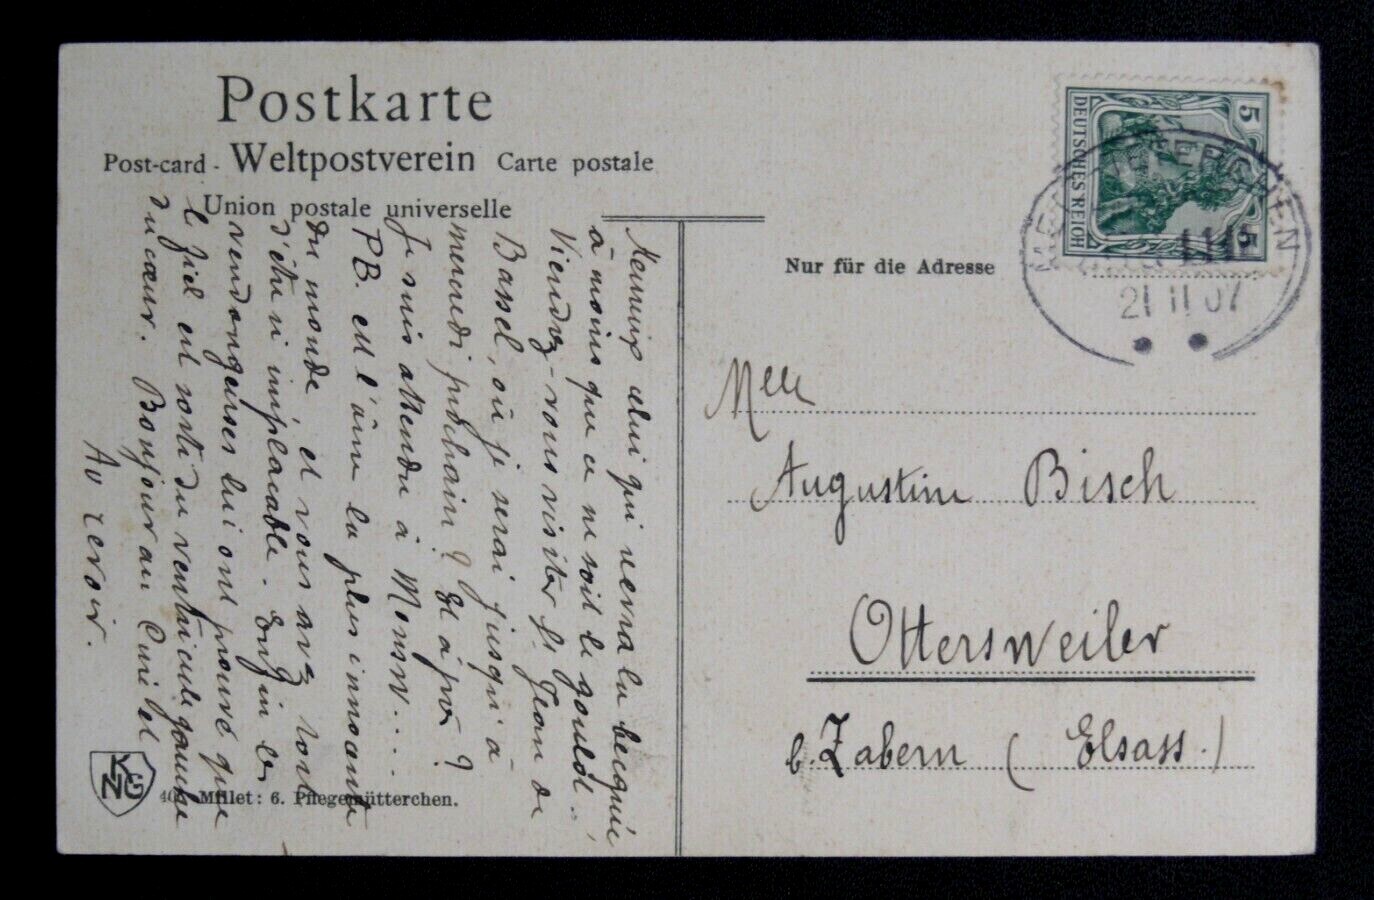 Postkarte
Post-card - Weltpostverein Carte postale
Union postale universelle
Nur für die Adresse
DEUTSCHES REICH
5
5
21 11 07
Melle
Augustine Bisch
Ottersweiler
b. Zabern (Elsass.)
celui qui verra la becquée
à moins que ce ne soit le
Viendrez-vous visiter St Jean de
Bassel, où je serai jusqu'à
mercredi prochain? Et à
Je suis attendu à
P.B. est l'âme la plus innocente
du monde, et vous avez tort
d'être si implacable. Enfin les
vendangeuses lui ont prouvé que
le fiel est sorti du ventricule gauche
du cœur. Bonjour au Curé et
Au revoir.
KNG
Millet: 6. Pflegemütterchen.